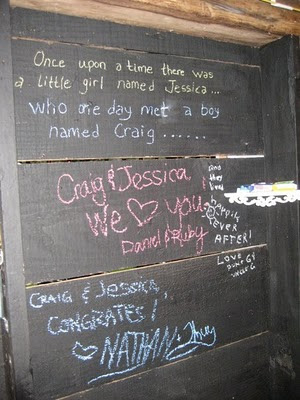 Once upon a time there was
a little girl named Jessica ...
who one day met a boy
named Craig ......
Craig & Jessica,
We ♡ you!
Daniel & Ruby
AND
they
lived
happily
EVER
AFTER!
LOVE
UNCLE G
CRAIG & JESSICA,
CONGRATES!
♡ NATHAN &